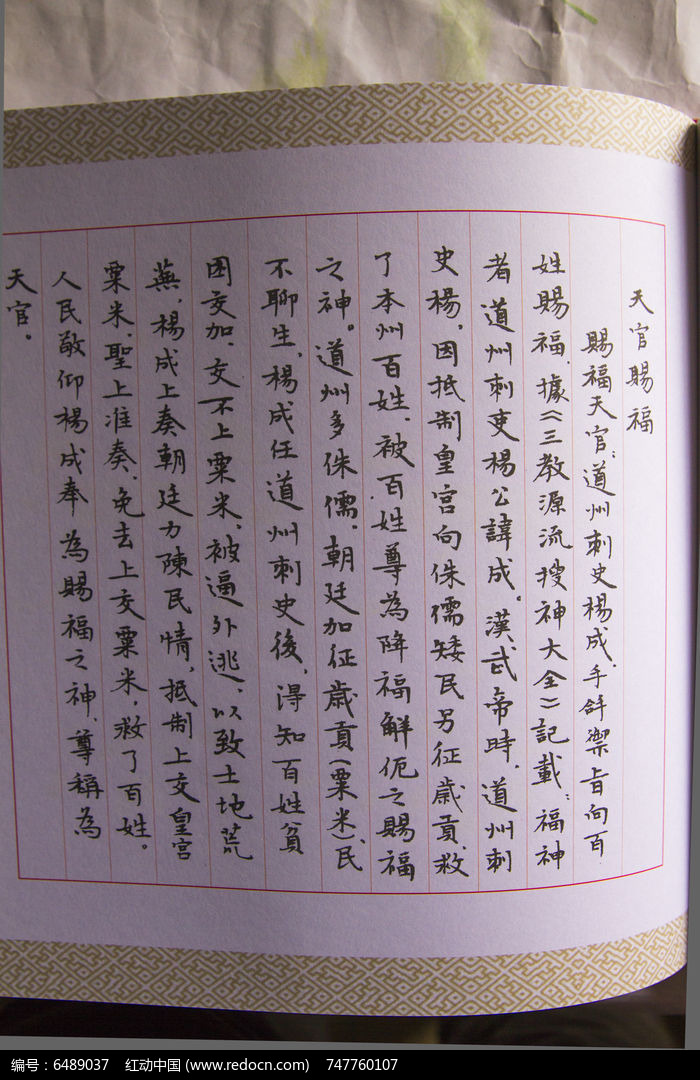 天官賜福
賜福天官：道州刺史楊成、手舒禦旨向百
姓賜福，據《三教源流搜神大全》記載：福神
者道州刺吏楊公諱成。漢武帝時，道州刺
史楊，因抵制皇宮向侏儒矮民另征歲貢，救
了本州百姓，被百姓尊為降福解伌之賜福
之神。道州多侏儒，朝廷加征歲貢（粟米），民
不聊生，楊成任道州刺史後，得知百姓貧
困交加，交不上粟米，被逼外逃，以致土地荒
蕪，楊成上奏朝廷力陳民情，抵制上交皇宮
粟米，聖上准奏，免去上交粟米，救了百姓。
人民敬仰楊成奉為賜福之神，尊稱為
天官。
编号：6489037 红动中国 (www.redocn.com) 747760107